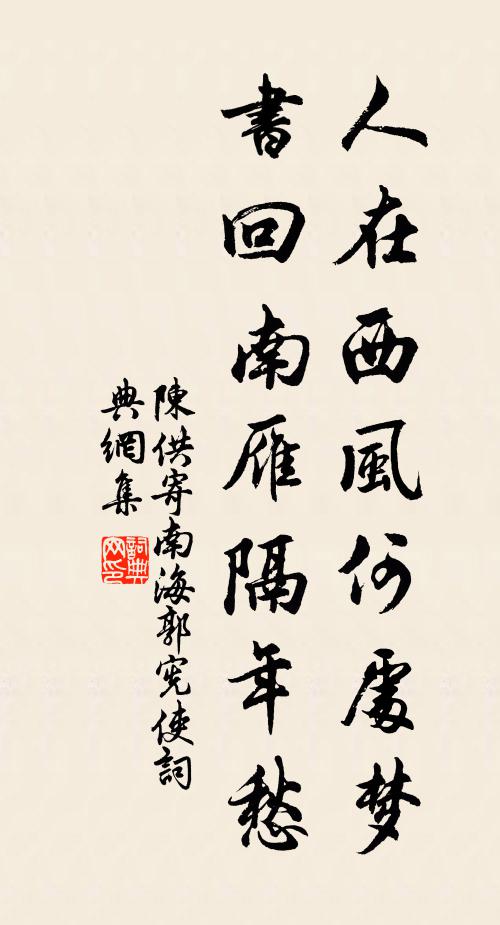 人在西風何處梦
書回南雁隔年愁
陳供寄南海郭宪使詞
典網集
詞典网印